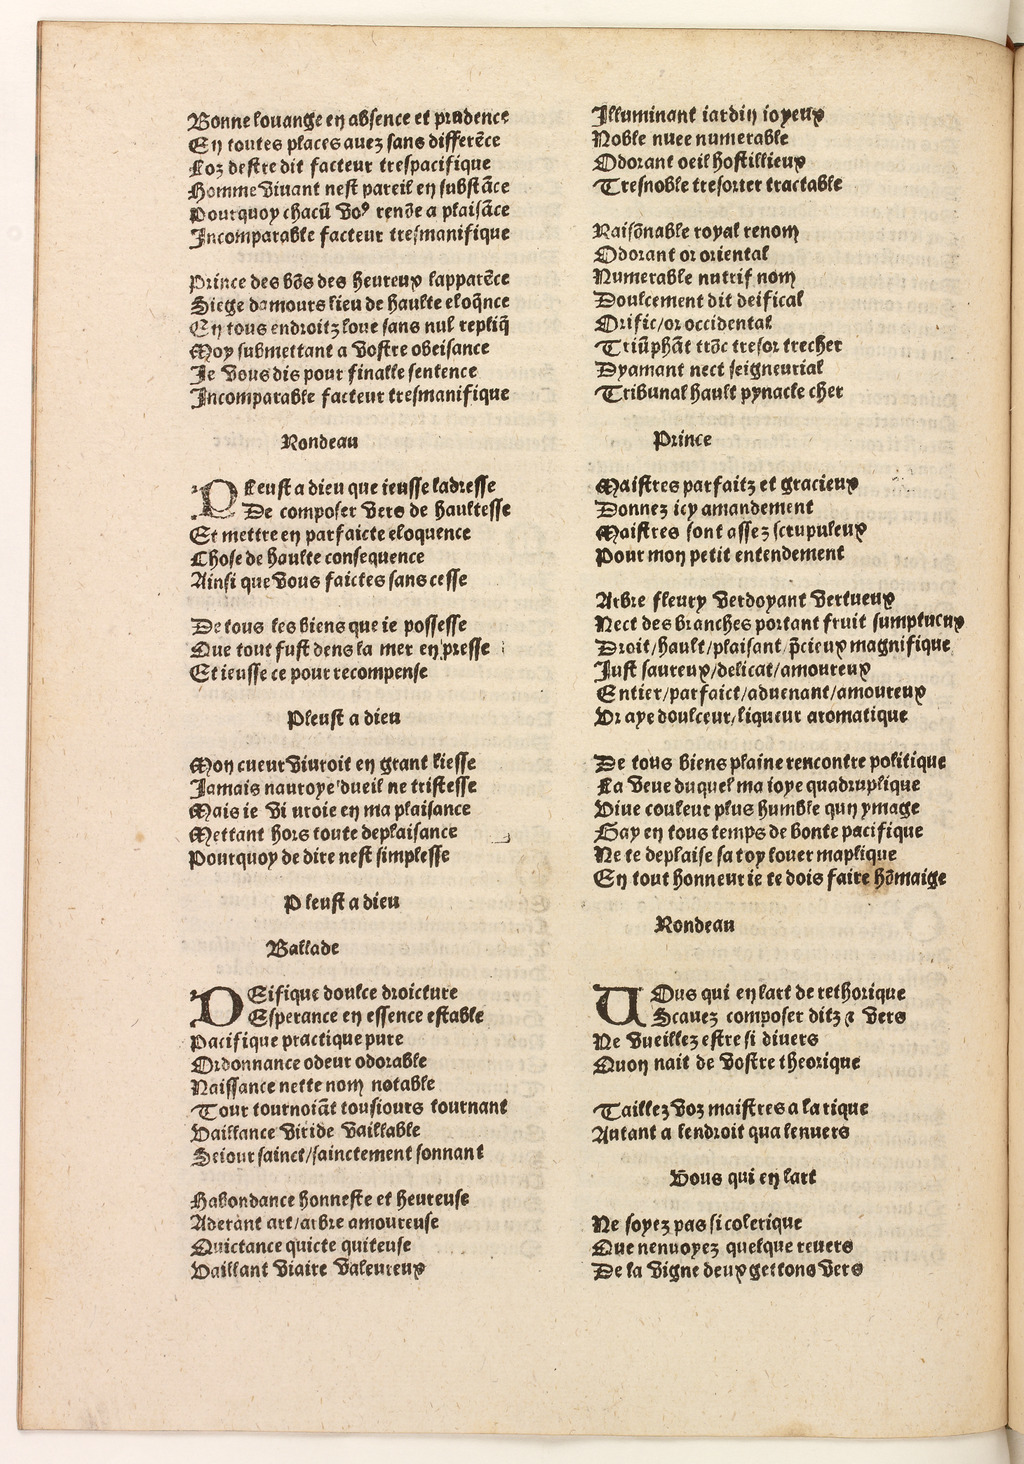 Bonne louange en absence et prudence
En toutes places auez sans differẽce
Loz destre dit facteur trespacifique
Homme viuant nest pareil en substãce
Pourquoy chacũ voꝰ rende a plaisãce
Incomparable facteur tresmanifique
Prince des bõs des heureux lapparẽce
Siege damours lieu de haulte eloq̃nce
En tous endroitz loue sans nul repliq̃
Moy submettant a vostre obeisance
Je vous dis pour finalle sentence
Incomparable facteur tresmanifique
Rondeau
PLeust a dieu que ieusse ladresse
De composer vers de haultesse
Et mettre en parfaicte eloquence
Chose de haulte consequence
Ainsi que vous faictes sans cesse
De tous les biens que ie possesse
Que tout fust dens la mer en presse
Et ieusse ce pour recompense
Pleust a dieu
Mon cueur viuroit en grant liesse
Jamais nauroye dueil ne tristesse
Mais ie vi uroie en ma plaisance
Mettant hors toute deplaisance
Pourquoy de dire nest simplesse
Pleust a dieu
Ballade
DEifique doulce droicture
Esperance en essence estable
Pacifique practique pure
Ordonnance odeur odorable
Naissance nette nom notable
Tour tournoiãt tousiours tournant
Vaillance viride vaillable
Seiour sainct/sainctement sonnant
Habondance honneste et heureuse
Aderant art/arbre amoureuse
Quictance quicte quiteuse
Vaillant viaire valeureux
Illuminant iardin ioyeux
Noble nuee numerable
Odorant oeil hostillieux
Tresnoble tresorier tractable
Raisõnable royal renom
Odorant or oriental
Numerable nutrif nom
Doulcement dit deifical
Orific/or occidental
Triũphãt trõc tresor trecher
Dyamant nect seigneurial
Tribunal hault pynacle cher
Prince
Maistres parfaitz et gracieux
Donnez icy amandement
Maistres sont assez scrupuleux
Pour mon petit entendement
Arbre fleury verdoyant vertueux
Nect des branches portant fruit sumptueux
Droit/hault/plaisant/p̃cieux magnifique
Just saureux/delicat/amoureux
Entier/parfaict/aduenant/amoureux
Vraye doulceur/liqueur aromatique
De tous biens plaine rencontre politique
La veue duquel ma ioye quadruplique
Viue couleur plus humble qun ymage
Gay en tous temps de bonte pacifique
Ne te deplaise sa toy louer maplique
En tout honneur ie te dois faire hõmaige
Rondeau
VOus qui en lart de rethorique
Scauez composer ditz ⁊ vers
Ne vueillez estre si diuers
Quon nait de vostre theorique
Taillez voz maistres a la rique
Autant a lendroit qua lenuers
Vous qui en lart
Ne soyez pas si colerique
Que nenuoyez quelque reuers
De la vigne deux gettons vers